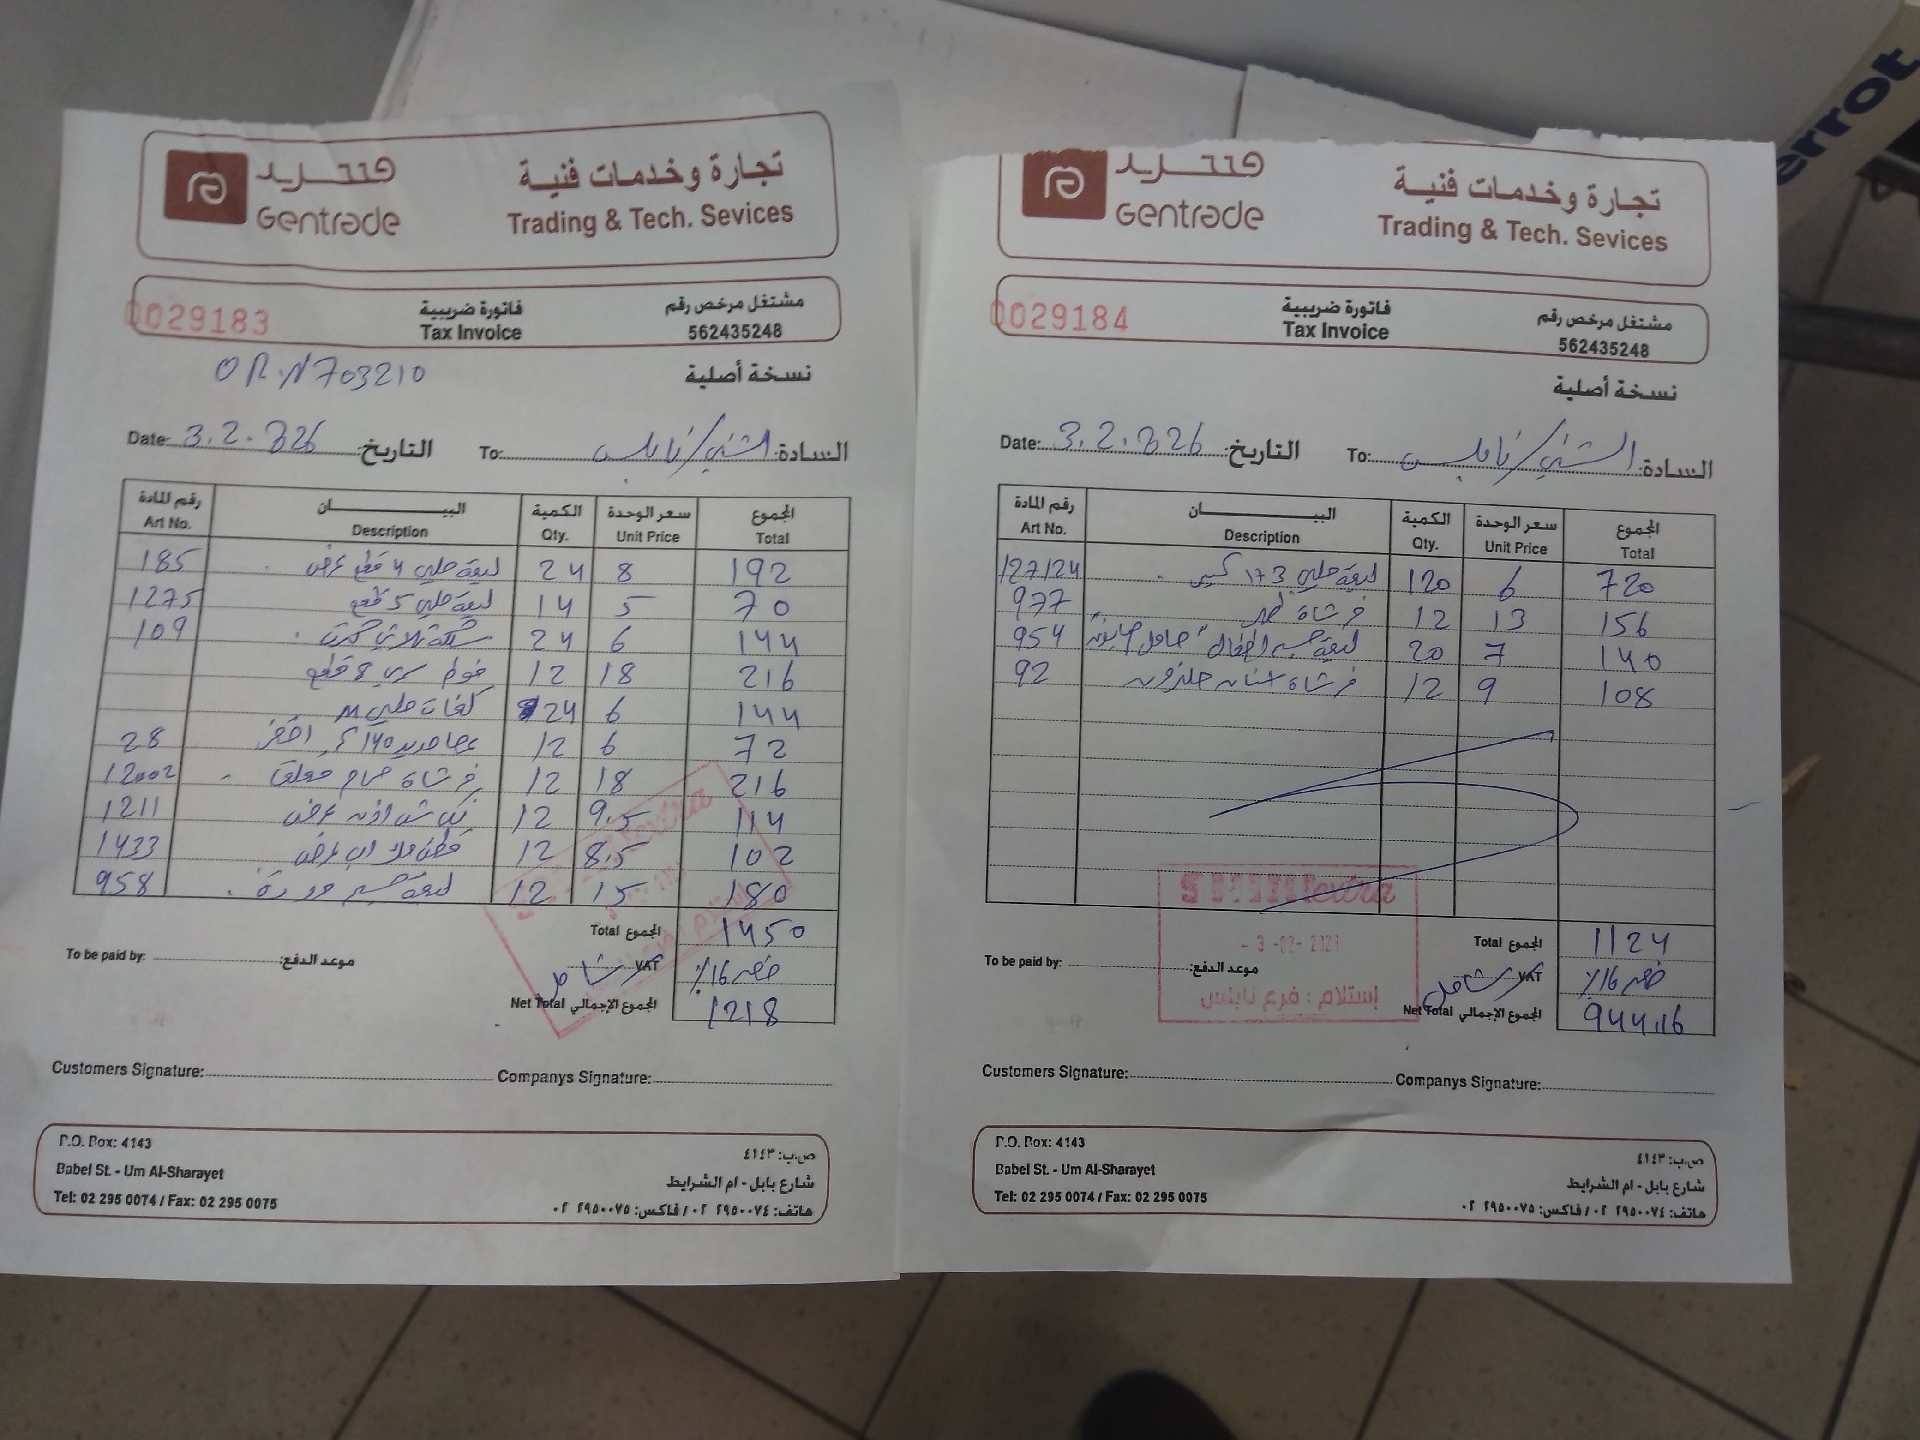 جنتريد
Gentrade
تجارة وخدمات فنية
Trading & Tech. Sevices
0029183
فاتورة ضريبية
Tax Invoice
مشتغل مرخص رقم
562435248
OR.N703210
نسخة أصلية
Date: 3.2.2026 التاريخ:
To: الشني/نابلس السادة:
رقم المادة البيــــان الكمية سعر الوحدة المجموع
Art No. Description Qty. Unit Price Total
185 ليفة جلي 4 قطع عرض 24 8 192
1275 ليفة جلي 5 قطع 14 5 70
109 24 6 144
فوط سري 8 قطع 12 18 216
كفات جلي M 24 6 144
28 عصا حديد 140 12 6 72
12002 فرشاة حمام معلق 12 18 216
1211 عرض 12 9.5 114
1433 عرض 12 8.5 102
958 ليفة جسم وردة 12 15 180
Total المجموع 1450
To be paid by: موعد الدفع:
VAT شامل خصم 16%
Net Total المجموع الإجمالي 1218
Customers Signature: Companys Signature:
P.O. Box: 4143
Babel St. - Um Al-Sharayet
Tel: 02 295 0074 / Fax: 02 295 0075
ص.ب: ٤١٤٣
شارع بابل - ام الشرايط
هاتف: ٠٢ ٢٩٥٠٠٧٤ / فاكس: ٠٢ ٢٩٥٠٠٧٥
جنتريد
Gentrade
تجارة وخدمات فنية
Trading & Tech. Sevices
0029184
فاتورة ضريبية
Tax Invoice
مشتغل مرخص رقم
562435248
نسخة أصلية
Date: 3.2.2026 التاريخ:
To: الشني/نابلس السادة:
رقم المادة البيــــان الكمية سعر الوحدة المجموع
Art No. Description Qty. Unit Price Total
127124 ليفة جلي 120 6 720
977 فرشاة ظهر 12 13 156
954 ليفة جسم اطفال "حامل صابون" 20 7 140
92 فرشاة اسنان حلزون 12 9 108
Total المجموع 1124
To be paid by: موعد الدفع:
VAT شامل خصم 16%
Net Total المجموع الإجمالي 944.16
إستلام : فرع نابلس
Customers Signature: Companys Signature:
P.O. Box: 4143
Babel St. - Um Al-Sharayet
Tel: 02 295 0074 / Fax: 02 295 0075
ص.ب: ٤١٤٣
شارع بابل - ام الشرايط
هاتف: ٠٢ ٢٩٥٠٠٧٤ / فاكس: ٠٢ ٢٩٥٠٠٧٥
errot